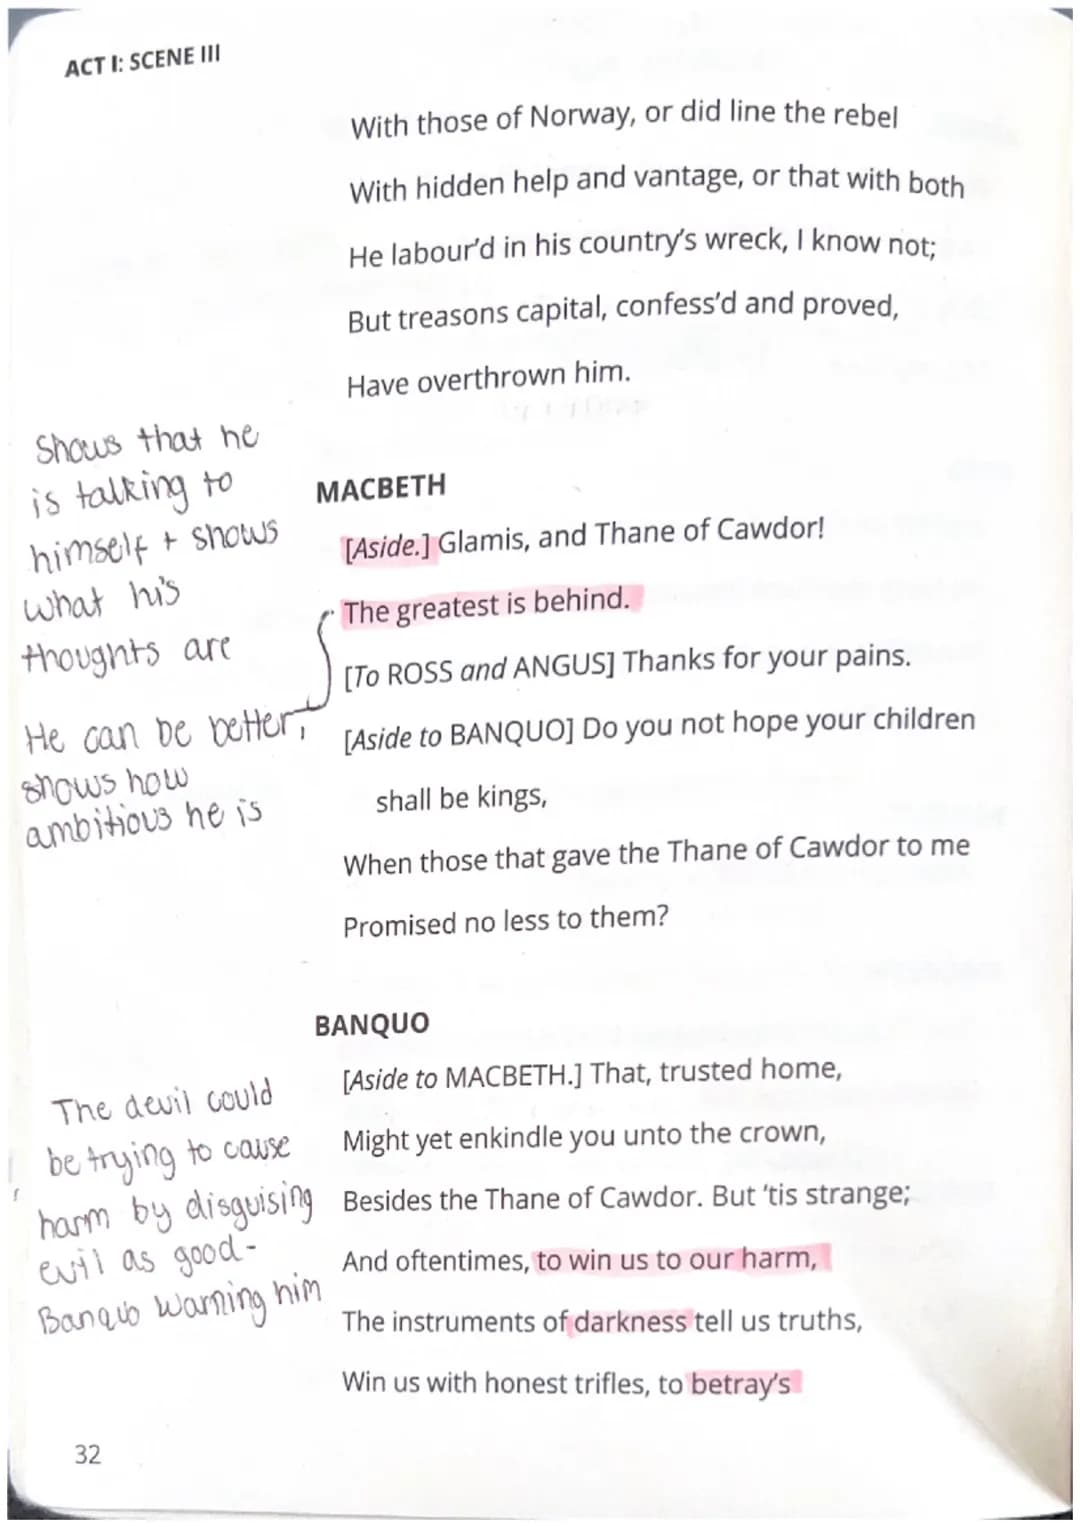 ACT I: SCENE III
With those of Norway, or did line the rebel
With hidden help and vantage, or that with both
He labour'd in his country's wreck, I know not;
But treasons capital, confess'd and proved,
Have overthrown him.
Shows that he
is talking to
himself + shows
what his
thoughts are
MACBETH
[Aside.] Glamis, and Thane of Cawdor!
The greatest is behind.
[To ROSS and ANGUS] Thanks for your pains.
He can be better,
shows how
ambitious he is
[Aside to BANQUO] Do you not hope your children
shall be kings,
When those that gave the Thane of Cawdor to me
Promised no less to them?
BANQUO
[Aside to MACBETH.] That, trusted home,
Might yet enkindle you unto the crown,
Besides the Thane of Cawdor. But 'tis strange;
And oftentimes, to win us to our harm,
The instruments of darkness tell us truths,
Win us with honest trifles, to betray's
The devil could
be trying to cause
harm by disguising
evil as good-
Banquo warning him
32